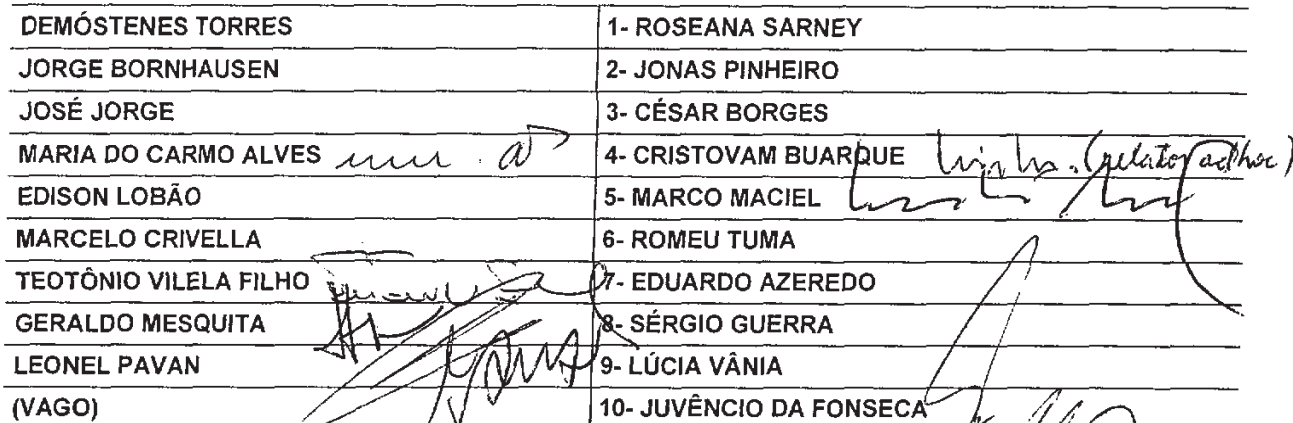 DEMÓSTENES TORRES 1- ROSEANA SARNEY
JORGE BORNHAUSEN 2- JONAS PINHEIRO
JOSÉ JORGE 3- CÉSAR BORGES
MARIA DO CARMO ALVES 4- CRISTOVAM BUARQUE (relator ad hoc)
EDISON LOBÃO 5- MARCO MACIEL
MARCELO CRIVELLA 6- ROMEU TUMA
TEOTÔNIO VILELA FILHO 7- EDUARDO AZEREDO
GERALDO MESQUITA 8- SÉRGIO GUERRA
LEONEL PAVAN 9- LÚCIA VÂNIA
(VAGO) 10- JUVÊNCIO DA FONSECA